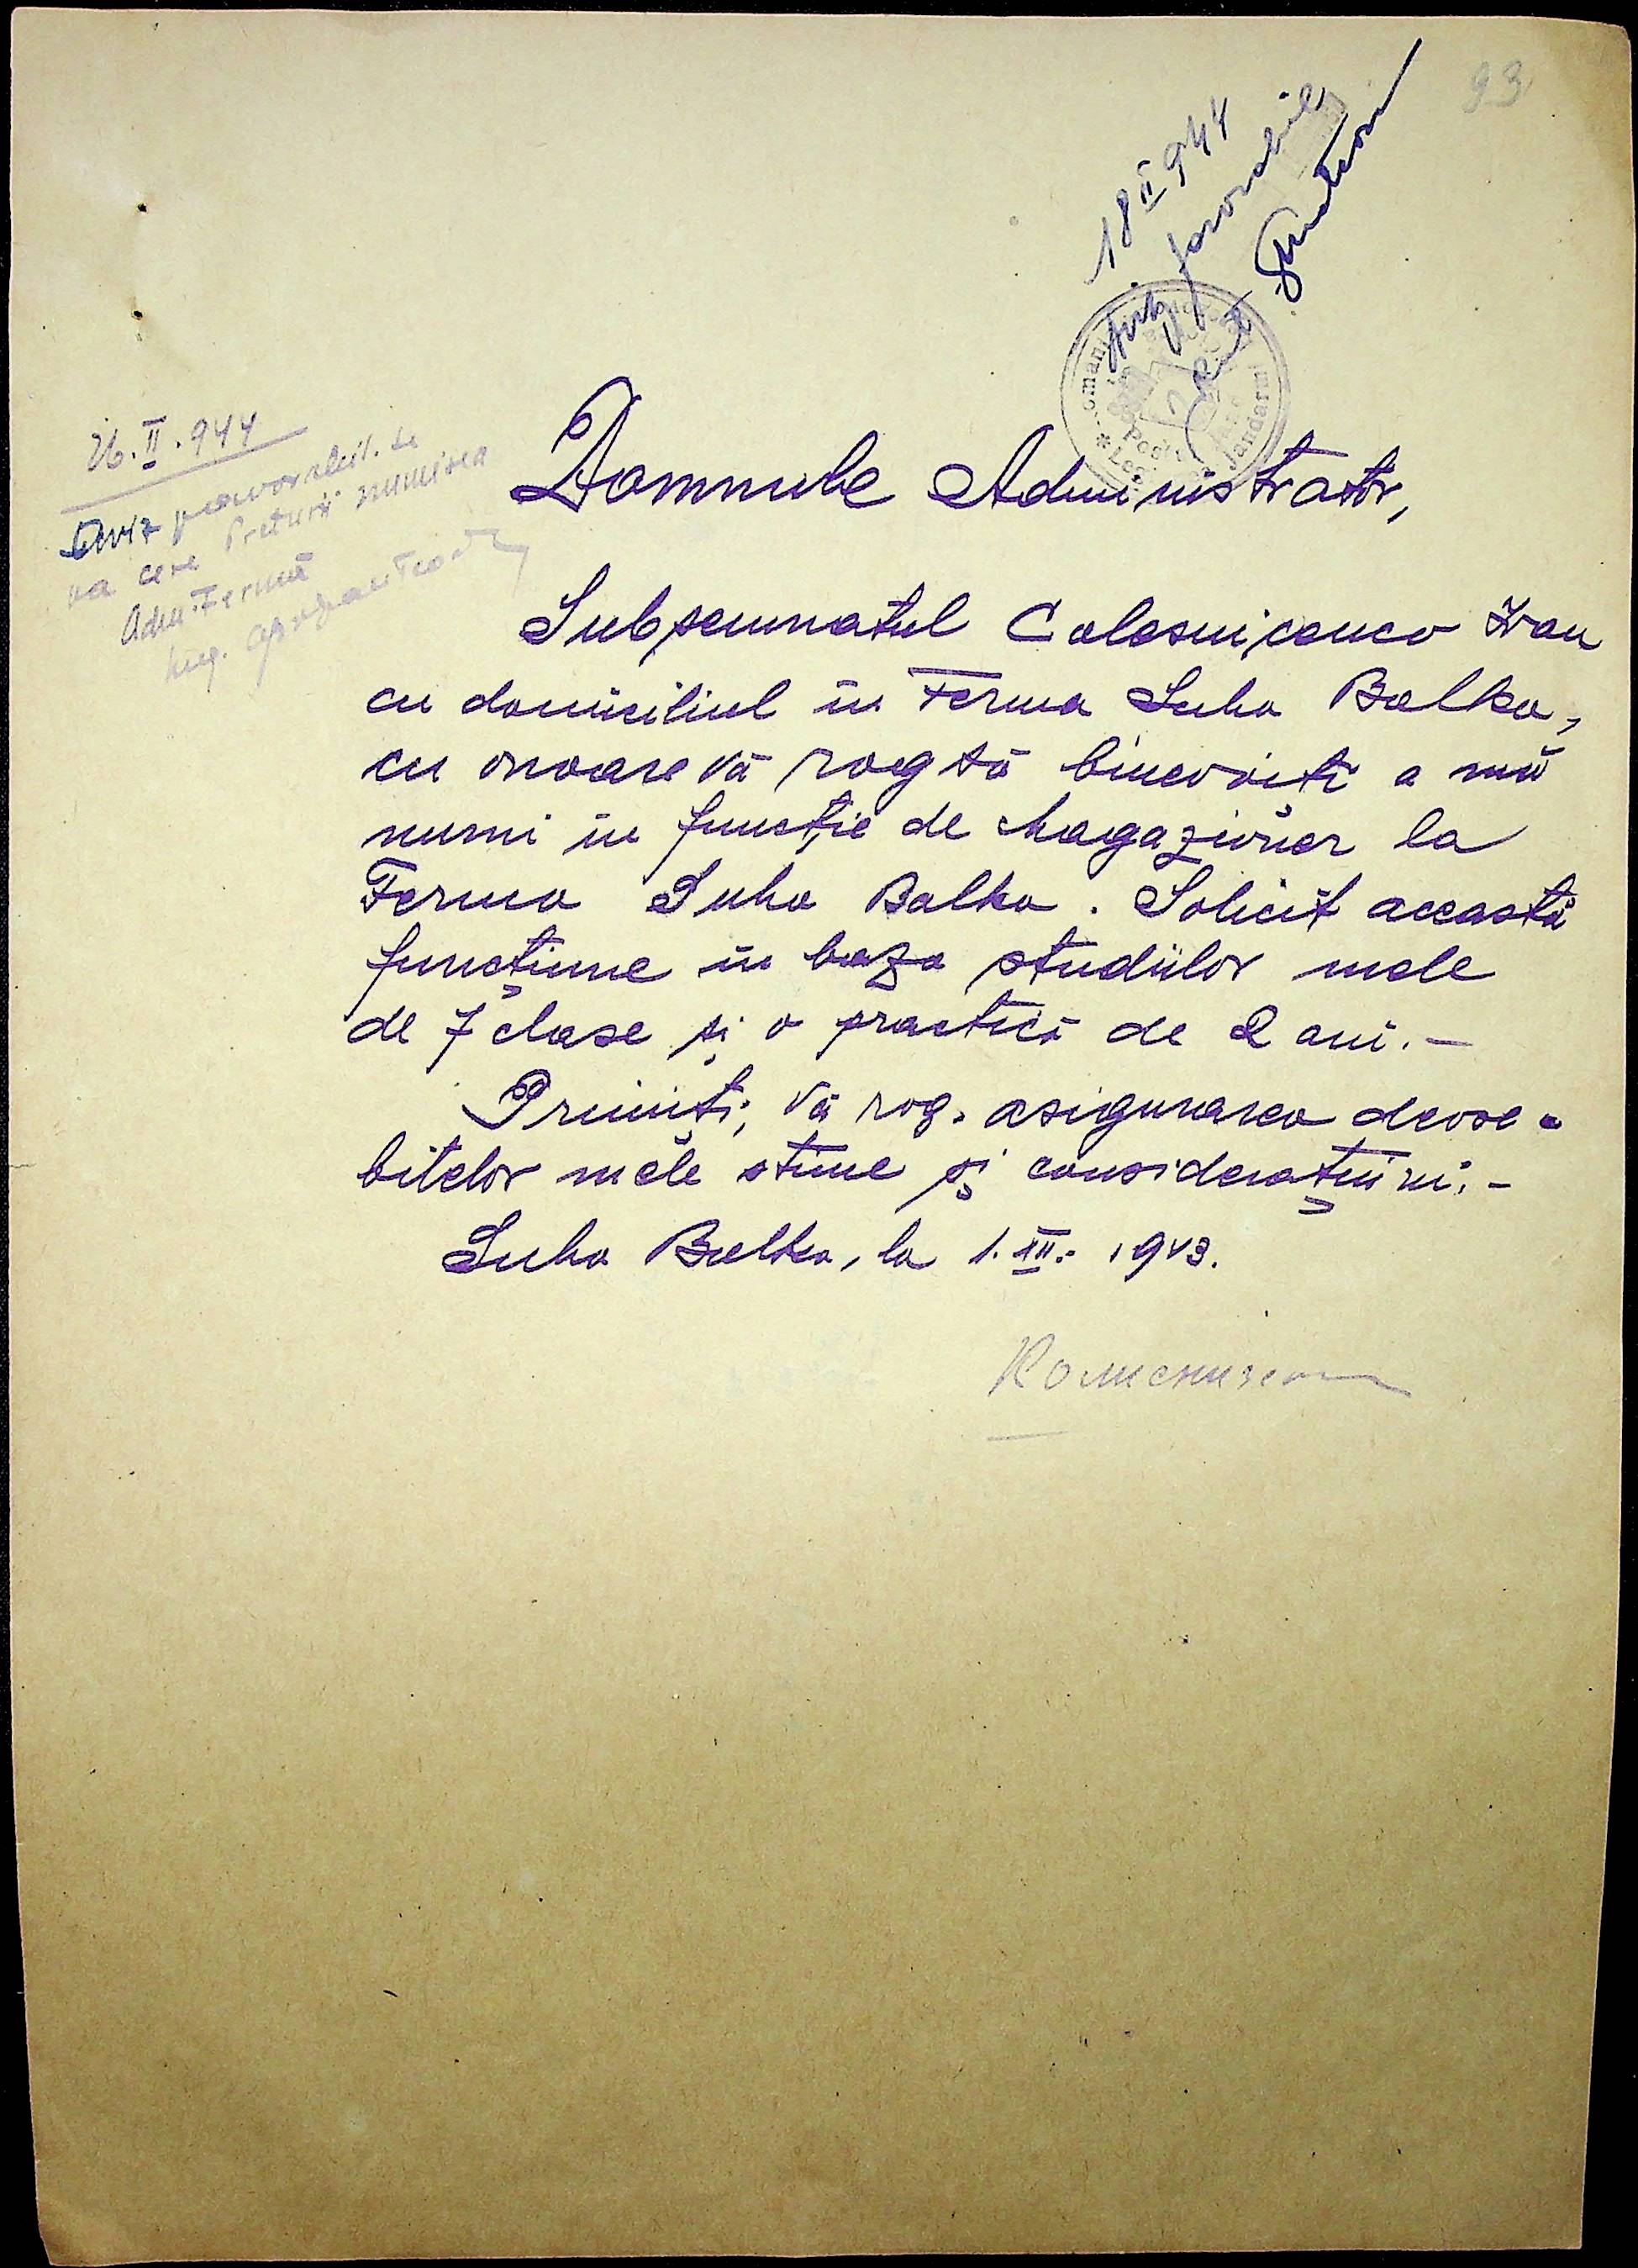 93
18 II 944
favorabil
26.II.944
Aviz favorabil. Se
va cere Preturii numirea
Adm. Fermă
Ing.
Domnule Administrator,
Subsemnatul Colesnicenco Ivan
cu domiciliul în Ferma Suha Balka,
cu onoare vă rog să binevoiti a mă
numi în funcție de Magaziner la
Ferma Suha Balka. Solicit această
funcțiune în baza studiilor mele
de 7 clase și o practică de 2 ani.-
Primiți, vă rog, asigurarea deose-
bitelor mele stime și considerațiuni.-
Suha Balka, la 1.III. 1943.